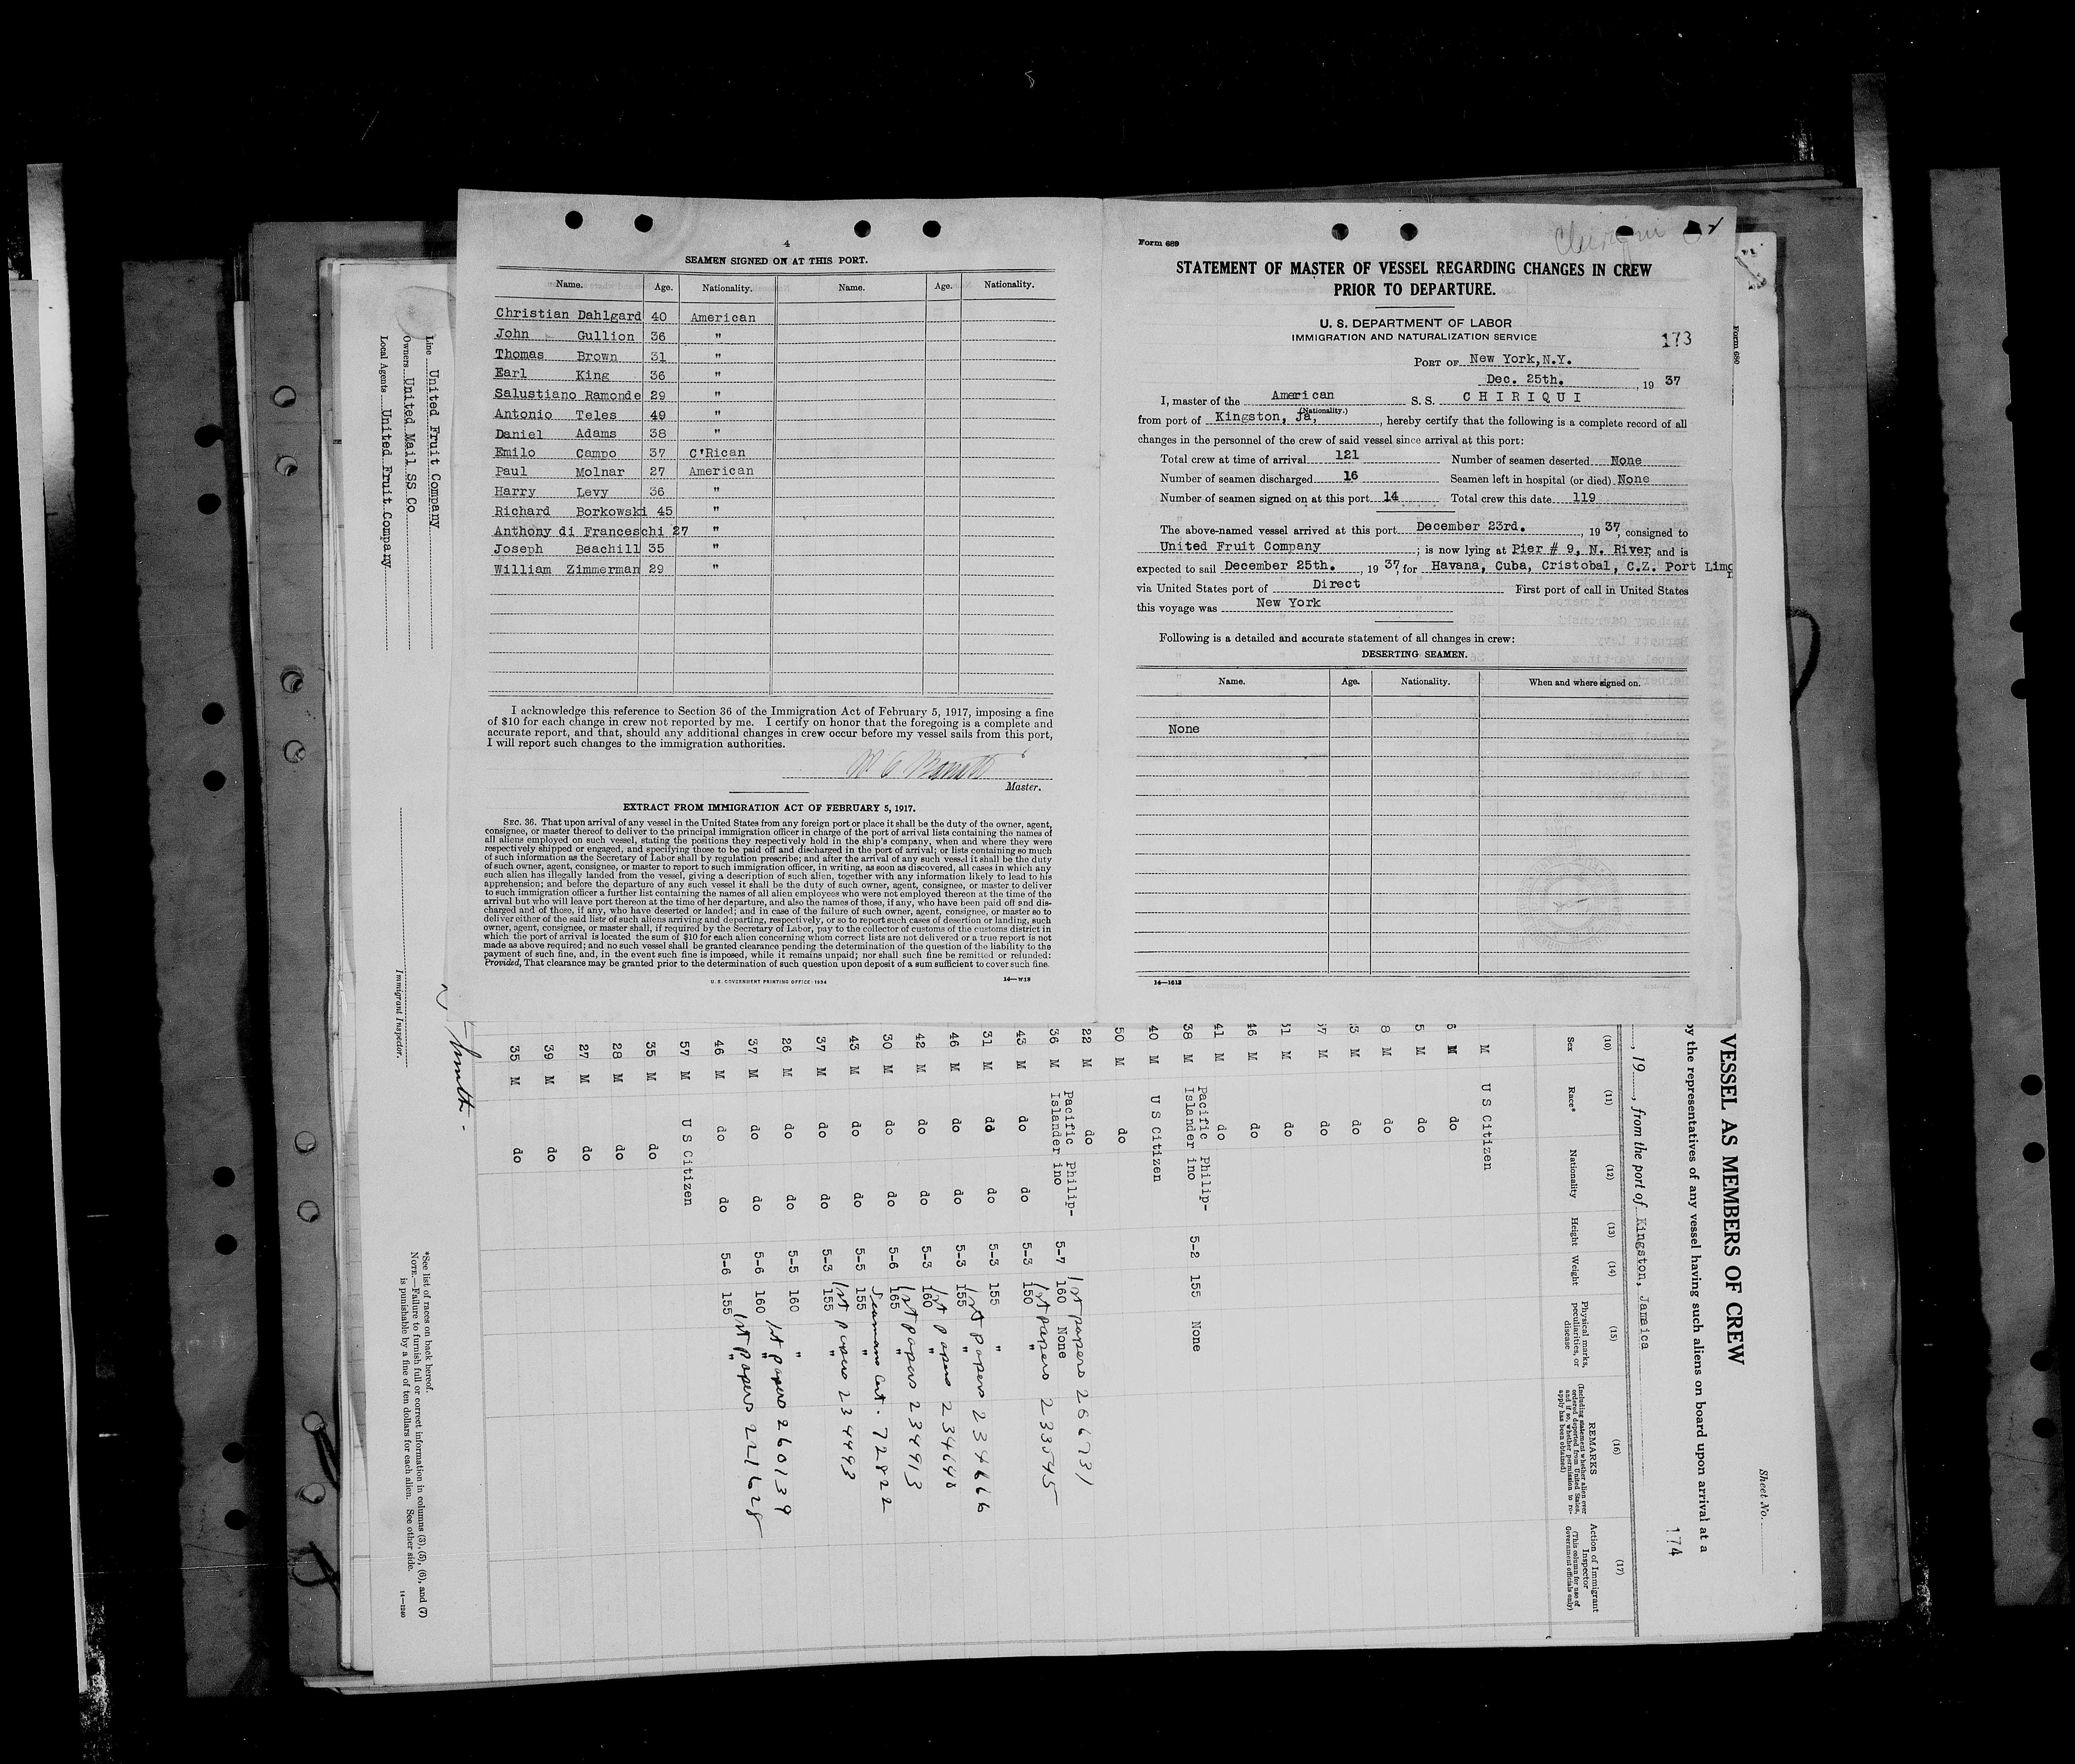 4
SEAMEN SIGNED ON AT THIS PORT.
Name. Age. Nationality. Name. Age. Nationality.
Christian Dahlgard 40 American
John Gullion 36 "
Thomas Brown 31 "
Earl King 36 "
Salustiano Ramonde 29 "
Antonio Teles 49 "
Daniel Adams 38 "
Emilo Campo 37 C'Rican
Paul Molnar 27 American
Harry Levy 36 "
Richard Borkowski 45 "
Anthony di Franceschi 27 "
Joseph Beachill 35 "
William Zimmerman 29 "
I acknowledge this reference to Section 36 of the Immigration Act of February 5, 1917, imposing a fine
of $10 for each change in crew not reported by me. I certify on honor that the foregoing is a complete and
accurate report, and that, should any additional changes in crew occur before my vessel sails from this port,
I will report such changes to the immigration authorities.
Master.
EXTRACT FROM IMMIGRATION ACT OF FEBRUARY 5, 1917.
SEC. 36. That upon arrival of any vessel in the United States from any foreign port or place it shall be the duty of the owner, agent,
consignee, or master thereof to deliver to the principal immigration officer in charge of the port of arrival lists containing the names of
all aliens employed on such vessel, stating the positions they respectively hold in the ship's company, when and where they were
respectively shipped or engaged, and specifying those to be paid off and discharged in the port of arrival; or lists containing so much
of such information as the Secretary of Labor shall by regulation prescribe; and after the arrival of any such vessel it shall be the duty
of such owner, agent, consignee, or master to report to such immigration officer, in writing, as soon as discovered, all cases in which any
such alien has illegally landed from the vessel, giving a description of such alien, together with any information likely to lead to his
apprehension; and before the departure of any such vessel it shall be the duty of such owner, agent, consignee, or master to deliver
to such immigration officer a further list containing the names of all alien employees who were not employed thereon at the time of the
arrival but who will leave port thereon at the time of her departure, and also the names of those, if any, who have been paid off and dis-
charged and of those, if any, who have deserted or landed; and in case of the failure of such owner, agent, consignee, or master so to
deliver either of the said lists of such aliens arriving and departing, respectively, or so to report such cases of desertion or landing, such
owner, agent, consignee, or master shall, if required by the Secretary of Labor, pay to the collector of customs of the customs district in
which the port of arrival is located the sum of $10 for each alien concerning whom correct lists are not delivered or a true report is not
made as above required; and no such vessel shall be granted clearance pending the determination of the question of the liability to the
payment of such fine, and, in the event such fine is imposed, while it remains unpaid; nor shall such fine be remitted or refunded:
Provided, That clearance may be granted prior to the determination of such question upon deposit of a sum sufficient to cover such fine.
U. S. GOVERNMENT PRINTING OFFICE: 1934
Form 689
Chiriqui
STATEMENT OF MASTER OF VESSEL REGARDING CHANGES IN CREW
PRIOR TO DEPARTURE.
U. S. DEPARTMENT OF LABOR
IMMIGRATION AND NATURALIZATION SERVICE
173
PORT OF New York,N.Y.
Dec. 25th. , 19 37
I, master of the American S. S. CHIRIQUI
(Nationality.)
from port of Kingston, Ja, , hereby certify that the following is a complete record of all
changes in the personnel of the crew of said vessel since arrival at this port:
Total crew at time of arrival 121 Number of seamen deserted None
Number of seamen discharged 16 Seamen left in hospital (or died) None
Number of seamen signed on at this port 14 Total crew this date 119
The above-named vessel arrived at this port December 23rd. , 19 37, consigned to
United Fruit Company ; is now lying at Pier # 9, N. River, and is
expected to sail December 25th. , 19 37, for Havana, Cuba, Cristobal, C.Z. Port Limo
via United States port of Direct First port of call in United States
this voyage was New York
Following is a detailed and accurate statement of all changes in crew:
DESERTING SEAMEN.
Name. Age. Nationality. When and where signed on.
None
14—1613
Form 680
Sheet No.
VESSEL AS MEMBERS OF CREW
by the representatives of any vessel having such aliens on board upon arrival at a
174
, 19 , from the port of Kingston, Jamaica
(10) (11) (12) (13) (14) (15) (16) (17)
Sex Race* Nationality Height Weight Physical marks, peculiarities, or disease REMARKS (Including statement whether alien ever ordered deported from United States, and if so, whether permission to reapply has been obtained) Action of Immigrant Inspector (This column for use of Government officials only)
M U S Citizen
M do
5 M do
8 M do
3 M do
M do
M do
46 M do
41 M do
38 M Pacific Islander Philip-ino 5-2 155 None
40 M U S Citizen
50 M do
22 M do
36 M Pacific Islander Philip-ino 5-7 160 None 1st papers 266731
43 M do do 5-3 150 " 1st papers 233545
31 M do do 5-3 155 "
46 M do do 5-3 155 " 1st papers 234666
42 M do do 5-3 160 " 1st papers 234648
30 M do do 5-6 165 1st papers 234913
43 M do do 5-5 155 " Seamans Cert. 72822
37 M do do 5-3 155 " 1st papers 234493
26 M do do 5-5 160 "
37 M do do 5-6 160 " 1st papers 260139
46 M do do 5-6 155 " 1st papers 221628
57 M U S Citizen
35 M do
28 M do
27 M do
39 M do
35 M do
Line United Fruit Company
Owners United Mail SS Co
Local Agents United Fruit Company
Immigrant Inspector.
*See list of races on back hereof.
NOTE.—Failure to furnish full or correct information in columns (3), (5), (6), and (7)
is punishable by a fine of ten dollars for each alien. See other side.
14—1240